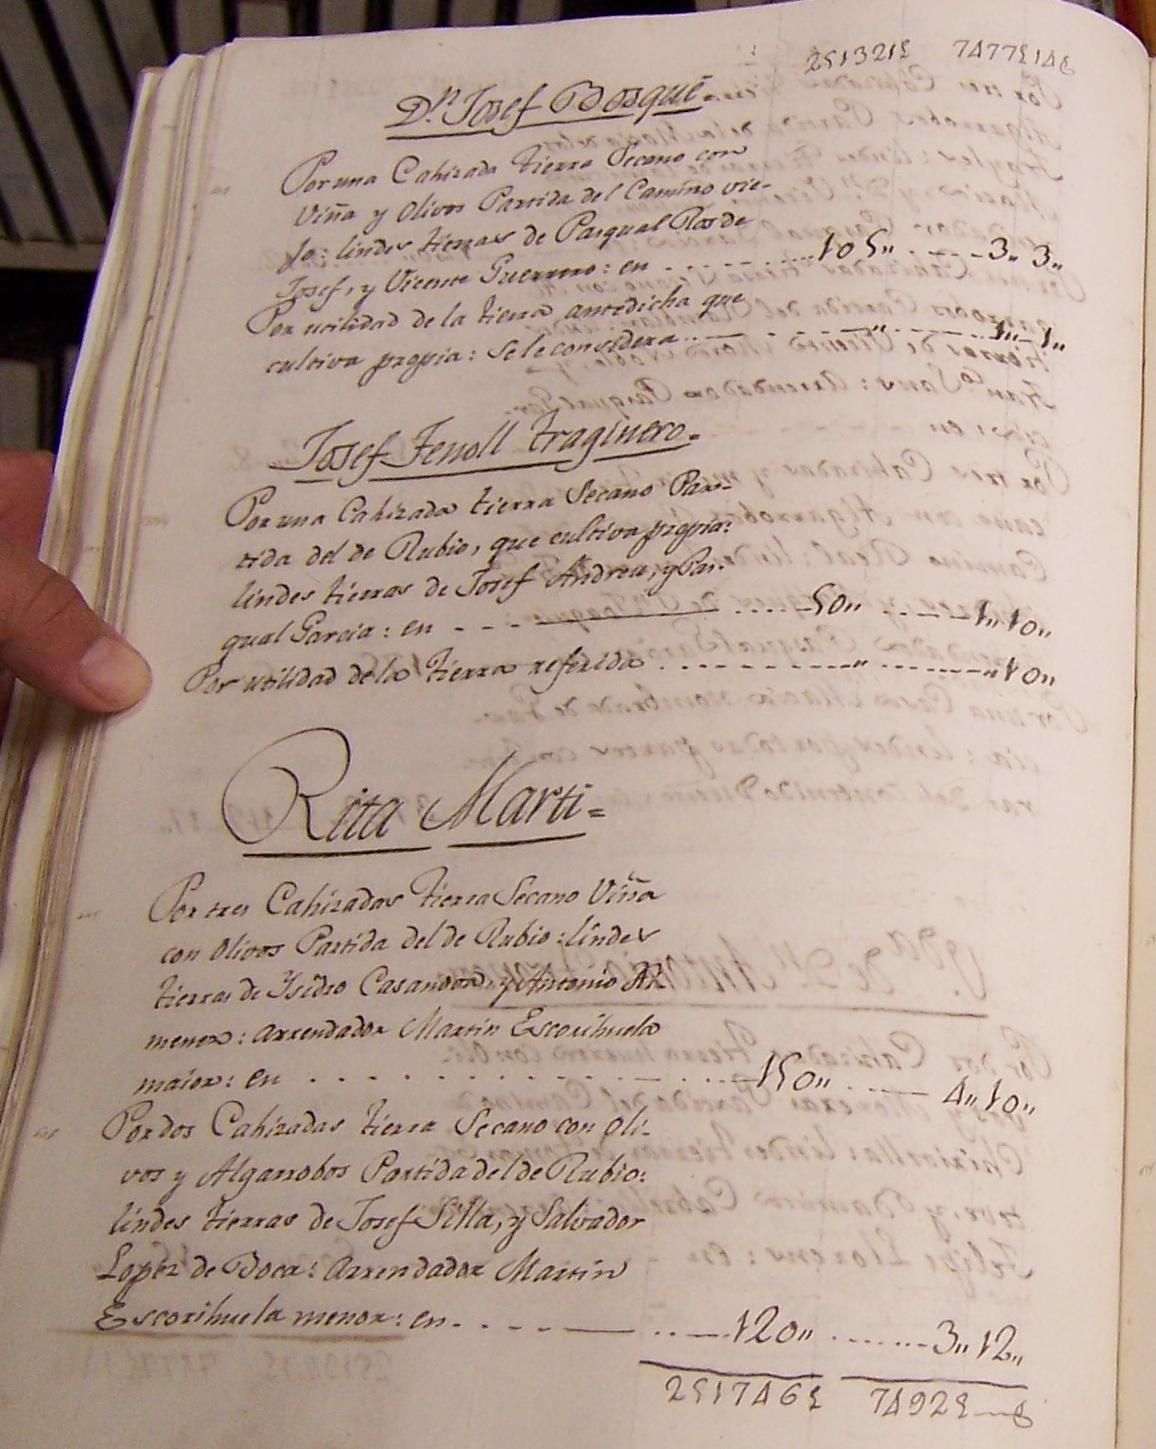 251321£ 7477£14
Dn. Josef Bosque
Por una Cahizada tierra Secano con
Viña y Olivos Partida del Camino vie-
jo: lindes tierras de Pasqual Ros de
Josef, y Vicente Guerrero: en 105,, 3,, 3,,
Por utilidad de la tierra antedicha que
cultiva propia: se le considera ,, 1,, 1,,
Josef Fenoll traginero=
Por una Cahizada tierra Secano Par-
tida del de Rubio, que cultiva propia:
lindes tierras de Josef Andreu, y Pas-
qual Garcia: en 50,, 1,, 10,,
Por utilidad de la tierra referida ,, ,, 10,,
Rita Marti=
Por tres Cahizadas tierra Secano Viña
con Olivos Partida del de Rubio: lindes
tierras de Ysidro Casanova, y Antonio
menor: arrendador Martin Escorihuela
maior: en 150,, 4,, 10,,
Por dos Cahizadas tierra Secano con Oli-
vos y Algarrobos Partida del de Rubio:
lindes tierras de Josef Silla, y Salvador
Lopez de Boca: Arrendador Martin
Escorihuela menor: en 120,, 3,, 12,,
251746£ 7492£